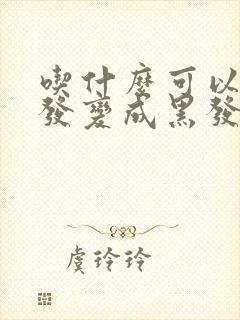 喫什麼可以
發變成黑發
虞玲玲